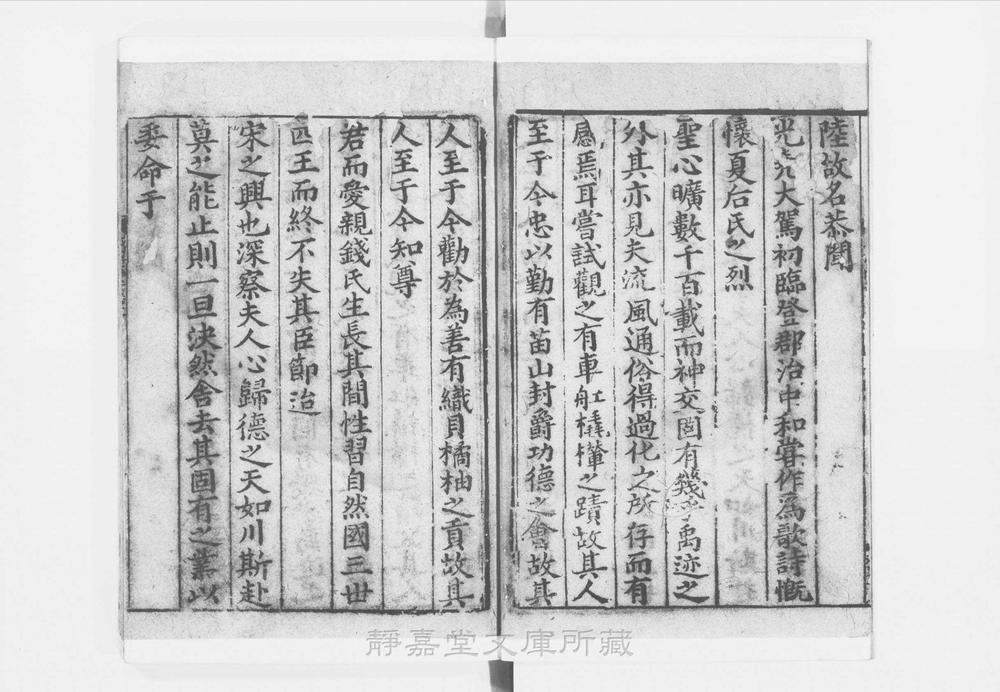 陸故名恭聞
光堯大駕初臨登郡治中和嘗作為歌詩慨
懷夏后氏之烈
聖心曠數千百載而神交固有幾乎禹迹之
外其亦見夫流風通俗得過化之所存而有
感焉耳嘗試觀之有車舡橇檋之蹟故其人
至于今忠以勤有苗山封爵功德之會故其
人至于今勸於為善有織貝橘柚之貢故其
人至于今知尊
君而愛親錢氏生長其間性習自然國三世
四王而終不失其臣節迨
宋之興也深察夫人心歸德之天如川斯赴
莫之能止則一旦決然舍去其固有之業以
委命于
靜嘉堂文庫所藏